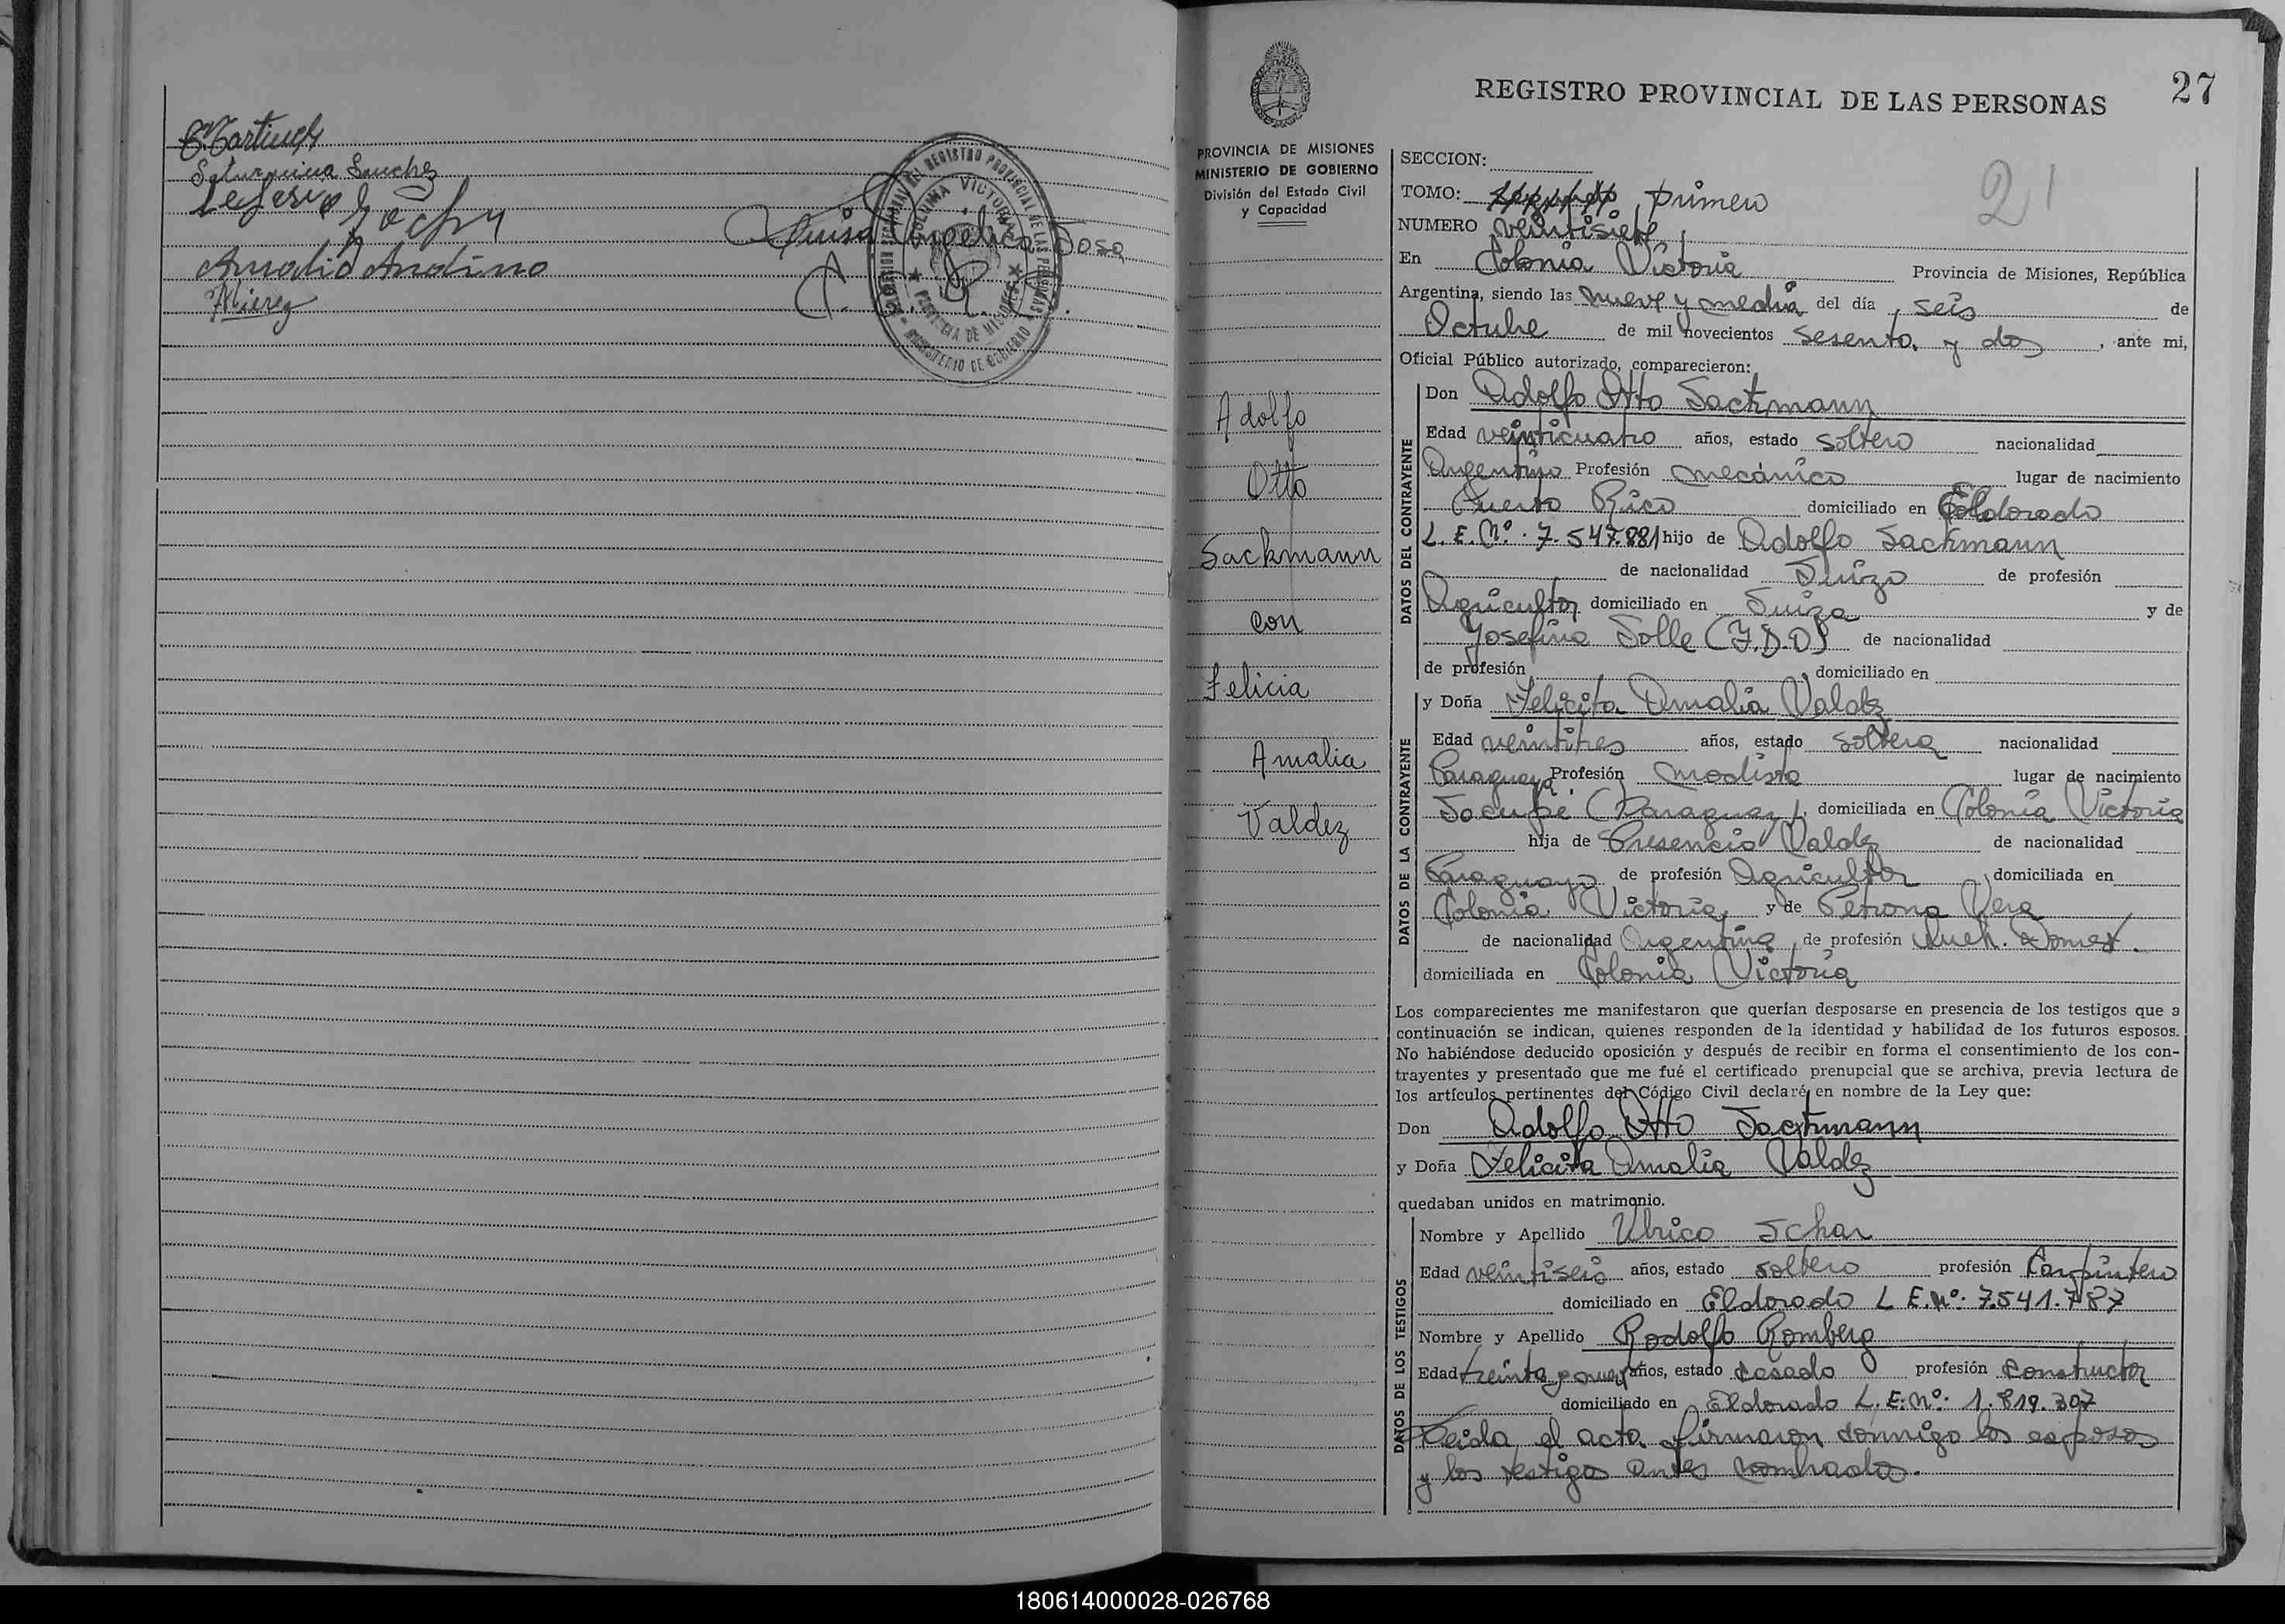 Saturnina Sanchez
Amalia Andino
Luisa Angelica Sosa
DELEGACION SECCIONAL DEL REGISTRO PROVINCIAL DE LAS PERSONAS
COLONIA VICTORIA
★ PROVINCIA DE MISIONES ★
MINISTERIO DE GOBIERNO
27
REGISTRO PROVINCIAL DE LAS PERSONAS
21
PROVINCIA DE MISIONES
MINISTERIO DE GOBIERNO
División del Estado Civil
y Capacidad
Adolfo
Otto
Sackmann
con
Felicia
Amalia
Valdez
SECCION:
TOMO: primero
NUMERO veintisiete
En Colonia Victoria Provincia de Misiones, República
Argentina, siendo las nueve y media del día seis de
Octubre de mil novecientos sesenta y dos, ante mi,
Oficial Público autorizado, comparecieron:
DATOS DEL CONTRAYENTE
Don Adolfo Otto Sackmann
Edad veinticuatro años, estado soltero nacionalidad
Argentino Profesión mecánico lugar de nacimiento
Puerto Rico domiciliado en Eldorado
L. E. Nº. 7.547.881 hijo de Adolfo Sackmann
de nacionalidad Suizo de profesión
Agricultor domiciliado en Suiza y de
Josefina Solle (F.D.O) de nacionalidad
de profesión domiciliado en
DATOS DE LA CONTRAYENTE
y Doña Felicita Amalia Valdez
Edad veintitres años, estado soltera nacionalidad
Paraguaya Profesión modista lugar de nacimiento
(Paraguay) domiciliada en Colonia Victoria
hija de Presencio Valdez de nacionalidad
Paraguayo de profesión Agricultor domiciliada en
Colonia Victoria y de Petrona Vera
de nacionalidad Argentina, de profesión Queh. Domest.
domiciliada en Colonia Victoria
Los comparecientes me manifestaron que querían desposarse en presencia de los testigos que a
continuación se indican, quienes responden de la identidad y habilidad de los futuros esposos.
No habiéndose deducido oposición y después de recibir en forma el consentimiento de los con-
trayentes y presentado que me fué el certificado prenupcial que se archiva, previa lectura de
los artículos pertinentes del Código Civil declaré en nombre de la Ley que:
Don Adolfo Otto Sackmann
y Doña Felicita Amalia Valdez
quedaban unidos en matrimonio.
DATOS DE LOS TESTIGOS
Nombre y Apellido Ulrico Schar
Edad veintiseis años, estado soltero profesión Carpintero
domiciliado en Eldorado L E. Nº. 7.541.787
Nombre y Apellido Rodolfo Romberg
Edad treinta y nueve años, estado casado profesión constructor
domiciliado en Eldorado L. E. Nº. 1.819.307
Leida el acta firmaron conmigo los esposos
y los testigos antes nombrados.
180614000028-026768